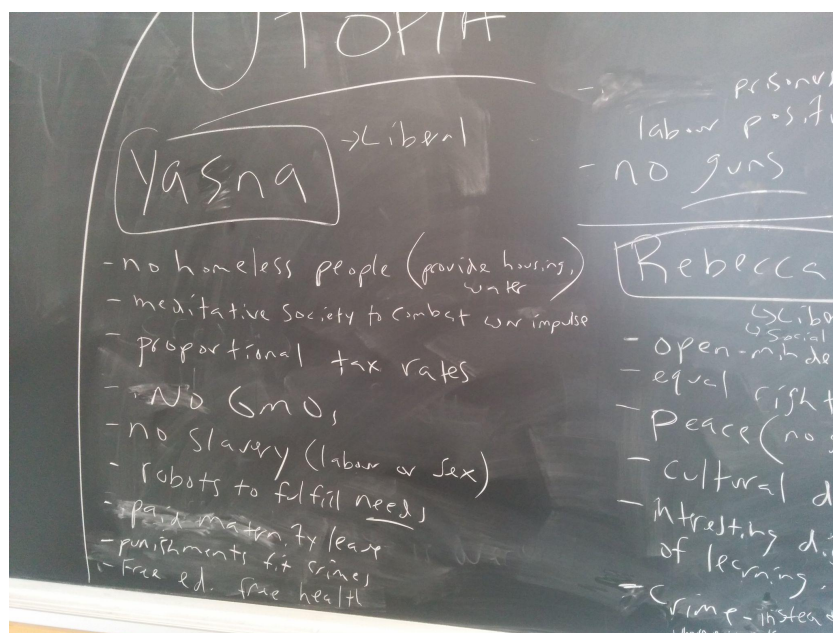 UTOPIA
Yasna
→Liberal
-no homeless people (provide housing,
water)
- meditative society to combat war impulse
- proportional tax rates
- No GMOs
- no slavery (labour or sex)
- robots to fulfill needs
- paid maternity leave
- punishments fit crimes
- Free ed. free health
labour
- no guns
Rebecca
- open-
- equal
- Peace (no
- cultural
-
of learning
- Crime - instead